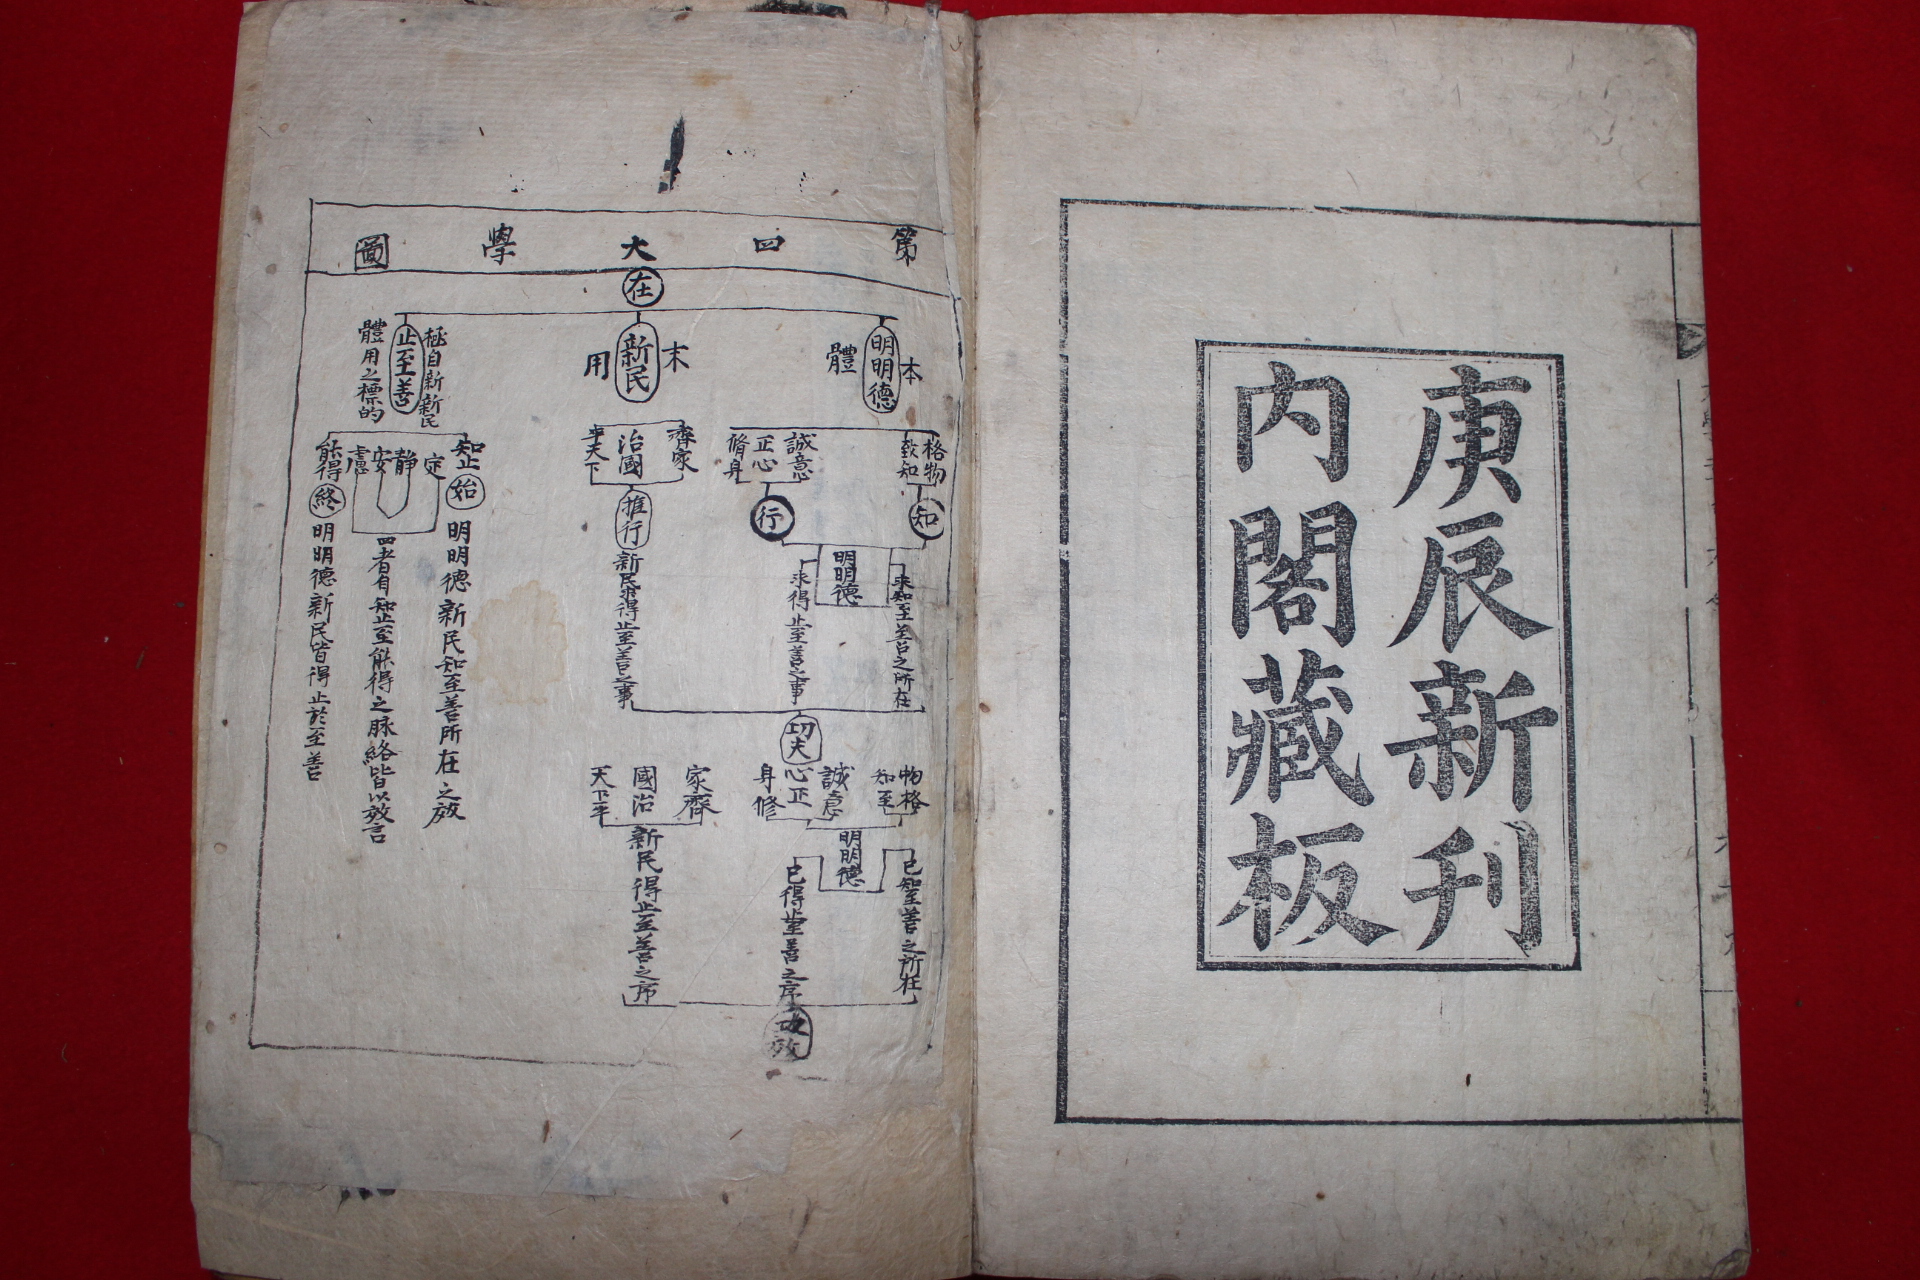 庚辰新刊
內閣藏板
第四大學圖
在
本
明明德
體
末
新民
用
極自新新民
止至善
體用之標的
格物
致知
知
誠意
正心
脩身
行
明明德
求知至善之所在
求得止至善之事
齊家
治國
平天下
推行
新民求得止至善之事
功夫
物格
知至
誠意
心正
身修
明明德
已知至善之所在
已得止至善之序
家齊
國治
天下平
新民得止至善之序
功效
知止
始
明明德新民知至善所在之效
定
靜
安
慮
四者自知止至能得之脉絡皆以效言
能得
終
明明德新民皆得止於至善